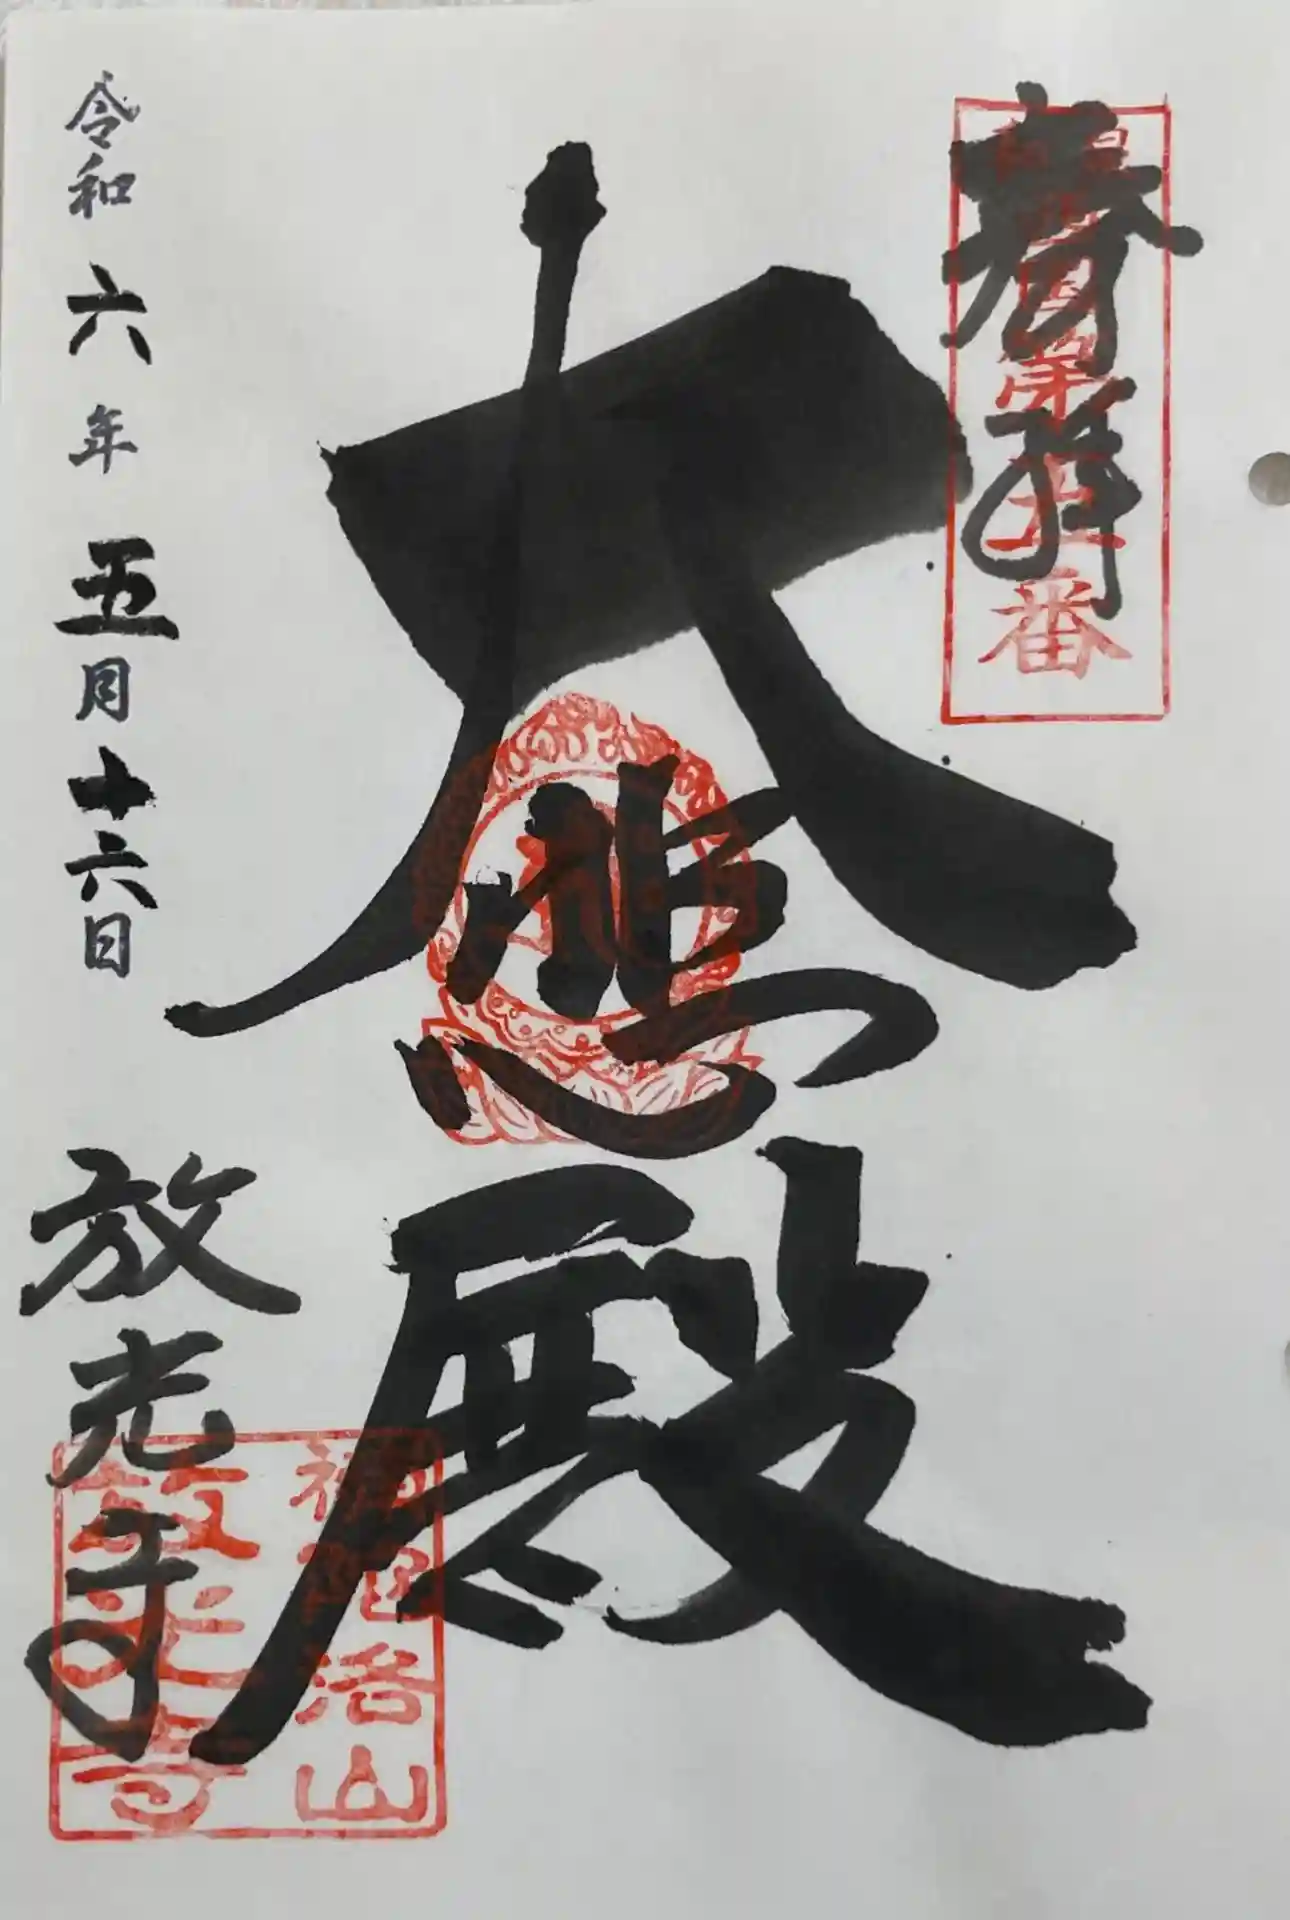 奉拝
番
大悲殿
令和六年五月十六日
放光寺
補陀洛山
放光寺